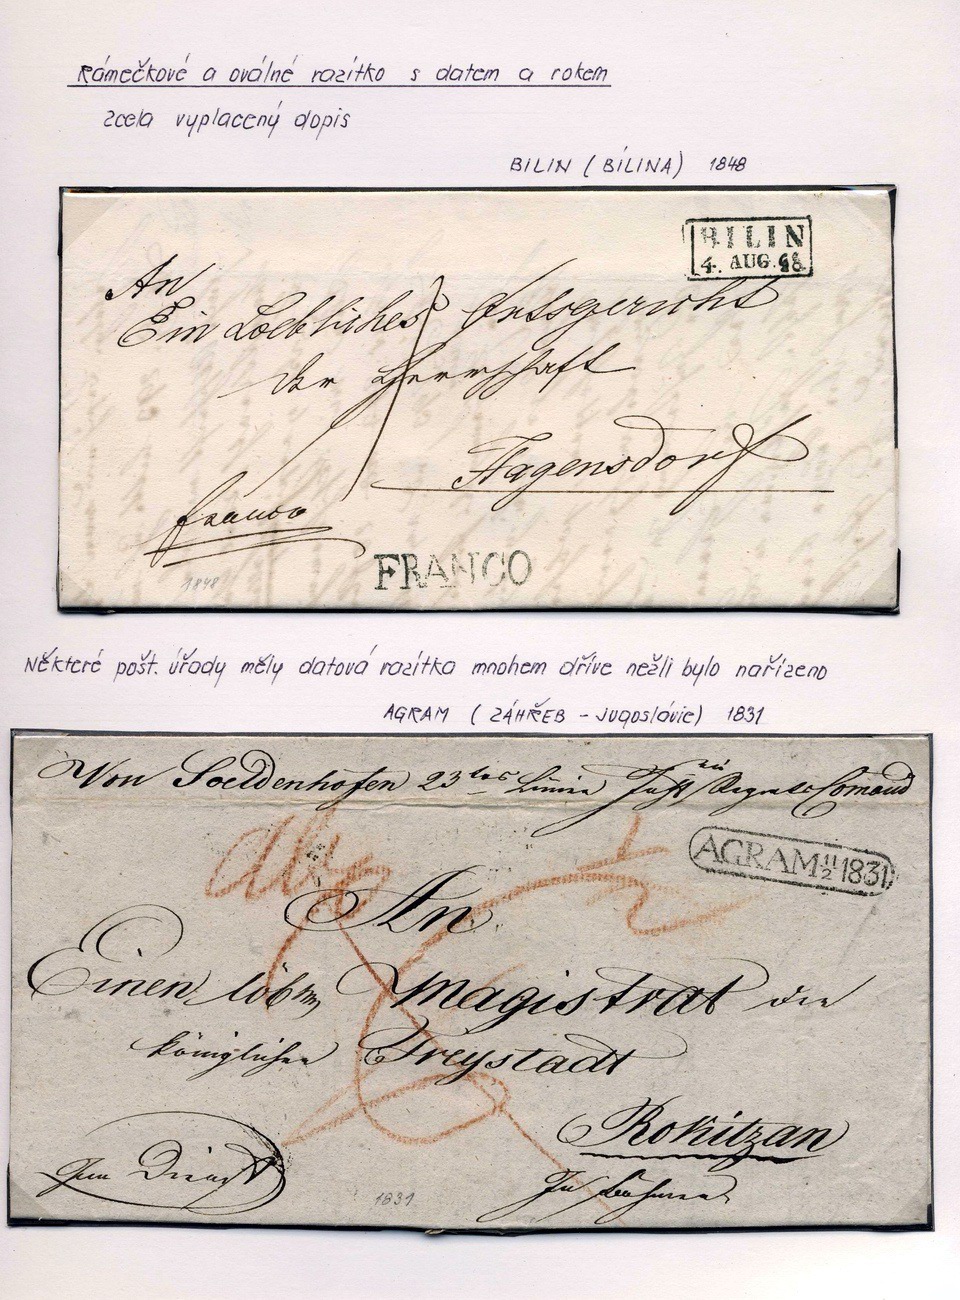 Rámečkové a oválné razítko s datem a rokem
zcela vyplacený dopis
BILIN (BÍLINA) 1848
BILIN
4. AUG. 48.
An
Ein Loebliches Ortsgericht
der Herrschaft
Hagensdorf
franco
FRANCO
1848
Některé pošt. úřady měly datová razítka mnohem dříve nežli bylo nařízeno
AGRAM (ZÁHŘEB - Jugoslávie) 1831
Von Soeldenhofen 23
AGRAM 11/2 1831
An
Einen löb Magistrat der
königlichen Freystadt
Rokitzan
Zum Dienst
In Böhmen
1831